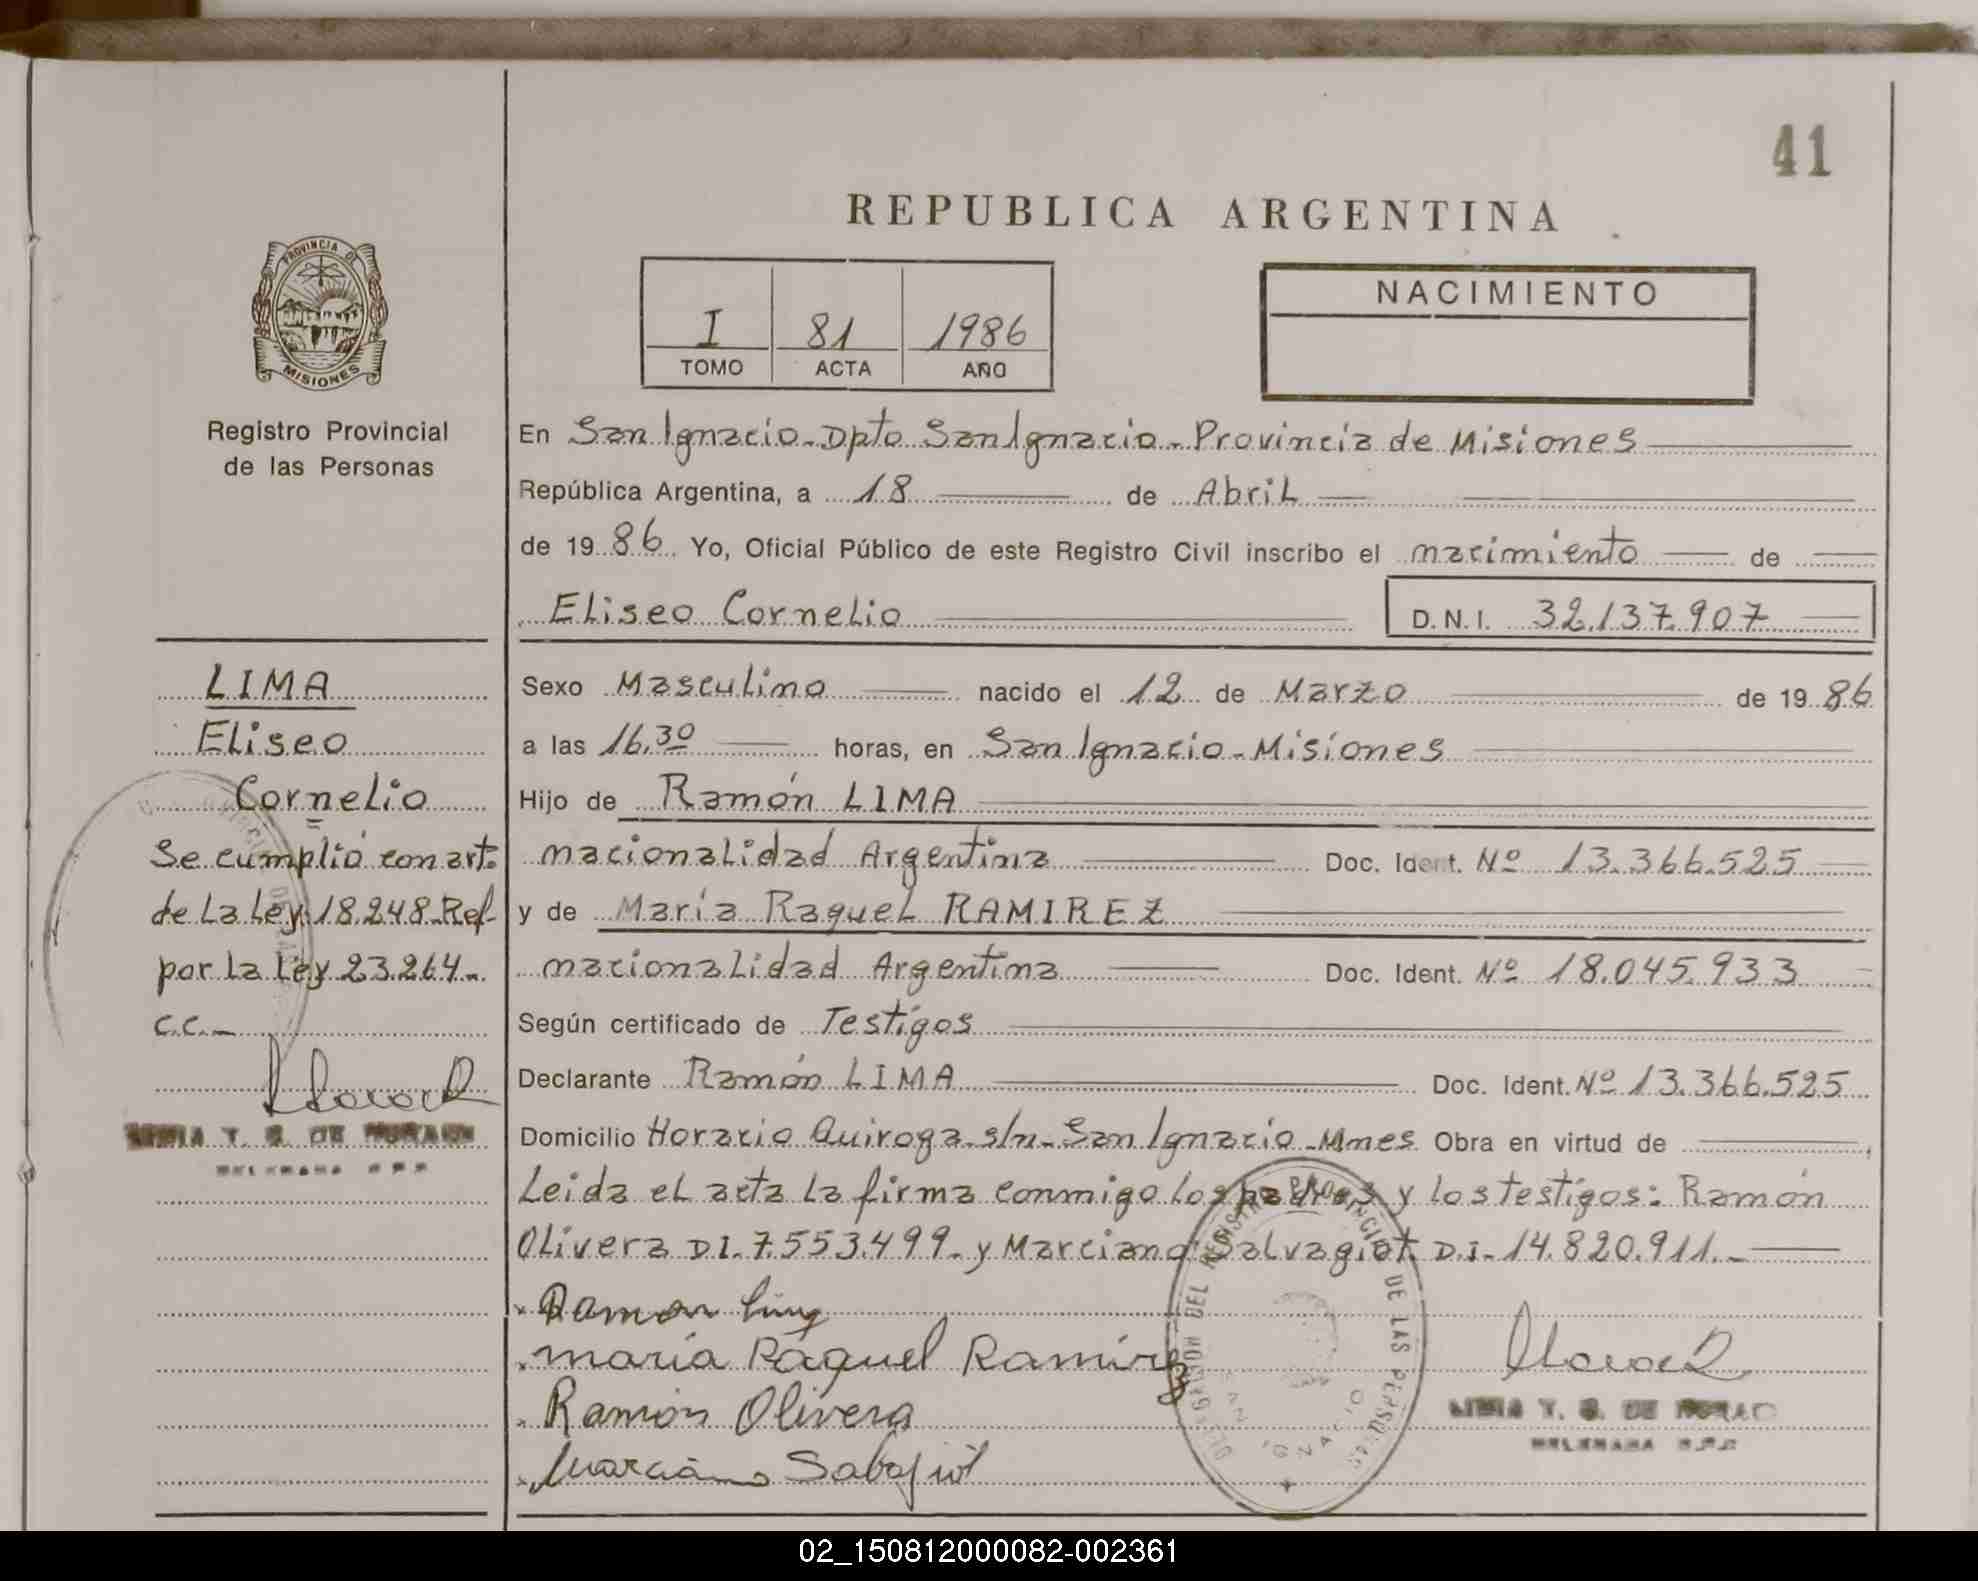 41
REPUBLICA ARGENTINA
PROVINCIA DE
MISIONES
Registro Provincial
de las Personas
I 81 1986
TOMO ACTA AÑO
NACIMIENTO
En San Ignacio - Dpto San Ignacio - Provincia de Misiones
República Argentina, a 18 de Abril
de 1986 Yo, Oficial Público de este Registro Civil inscribo el nacimiento de
Eliseo Cornelio D.N.I. 32.137.907
Sexo Masculino nacido el 12 de Marzo de 1986
a las 16.30 horas, en San Ignacio - Misiones
Hijo de Ramón LIMA
nacionalidad Argentina Doc. Ident. Nº 13.366.525
y de María Raquel RAMIREZ
nacionalidad Argentina Doc. Ident. Nº 18.045.933
Según certificado de Testigos
Declarante Ramón LIMA Doc. Ident. Nº 13.366.525
Domicilio Horacio Quiroga s/n - San Ignacio - Mnes Obra en virtud de
Leida el acta la firma conmigo los padres y los testigos: Ramón
Olivera D.I. 7.553.499 - y Marciano Salvagiot D.I - 14.820.911. -
Ramon
maria Raquel Ramirez
Ramón Olivera
Marciano
LIMA
Eliseo
Cornelio
Se cumplió con art:
de la Ley 18.248 - Ref
por la Ley 23.264 -
C.C. -
DELEGACION DEL REGISTRO PROVINCIAL DE LAS PERSONAS
SAN IGNACIO
02_150812000082-002361